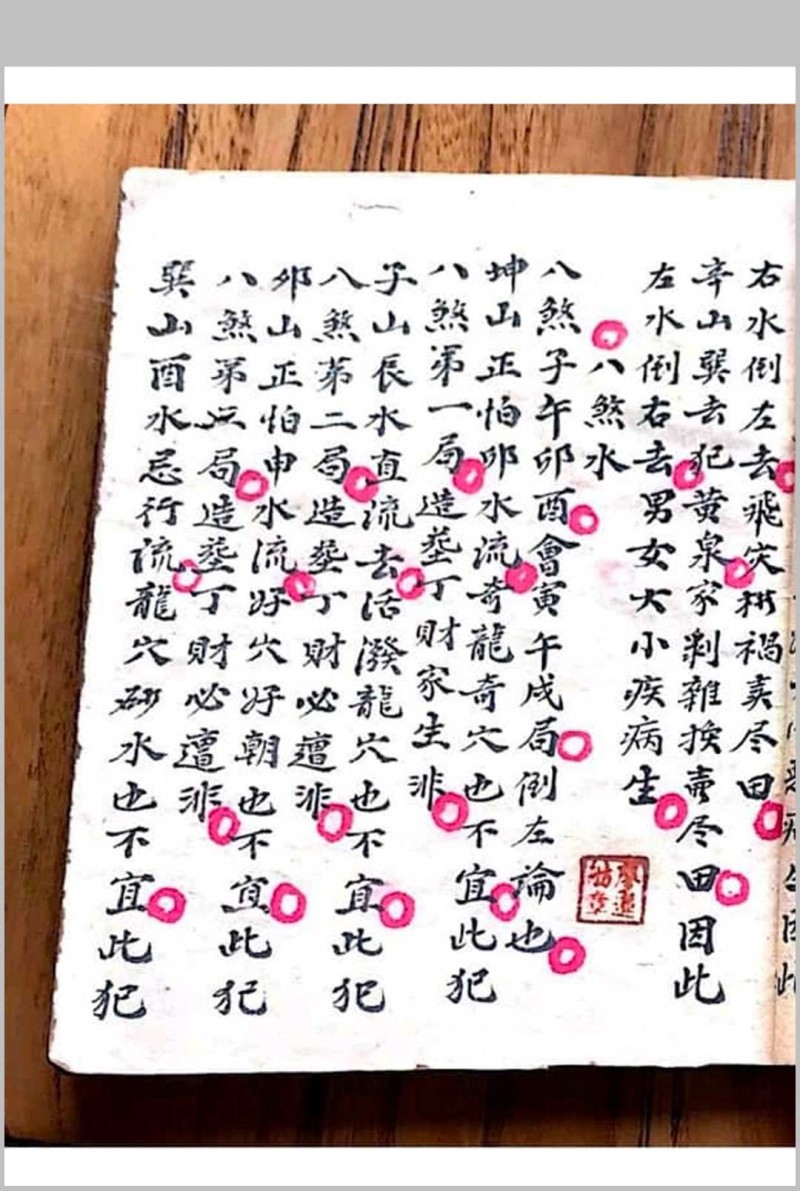 右水倒左去飛災橫禍賣尽田
辛山巽去犯黄泉家剥雜換賣尽田因此
左水倒右去男女大小疾病生
八煞水
八煞子午卯酉會寅午戌局倒左論也
坤山正怕卯水流奇龍奇穴也不宜此犯
八煞第一局造塟丁財家生非
子山辰水直流去活潑龍穴也不宜此犯
八煞第二局造塟丁財必遭非
卯山正怕申水流好穴好朝也不宜此犯
八煞第三局造塟丁財必遭非
巽山酉水忌行流龍穴砂水也不宜此犯